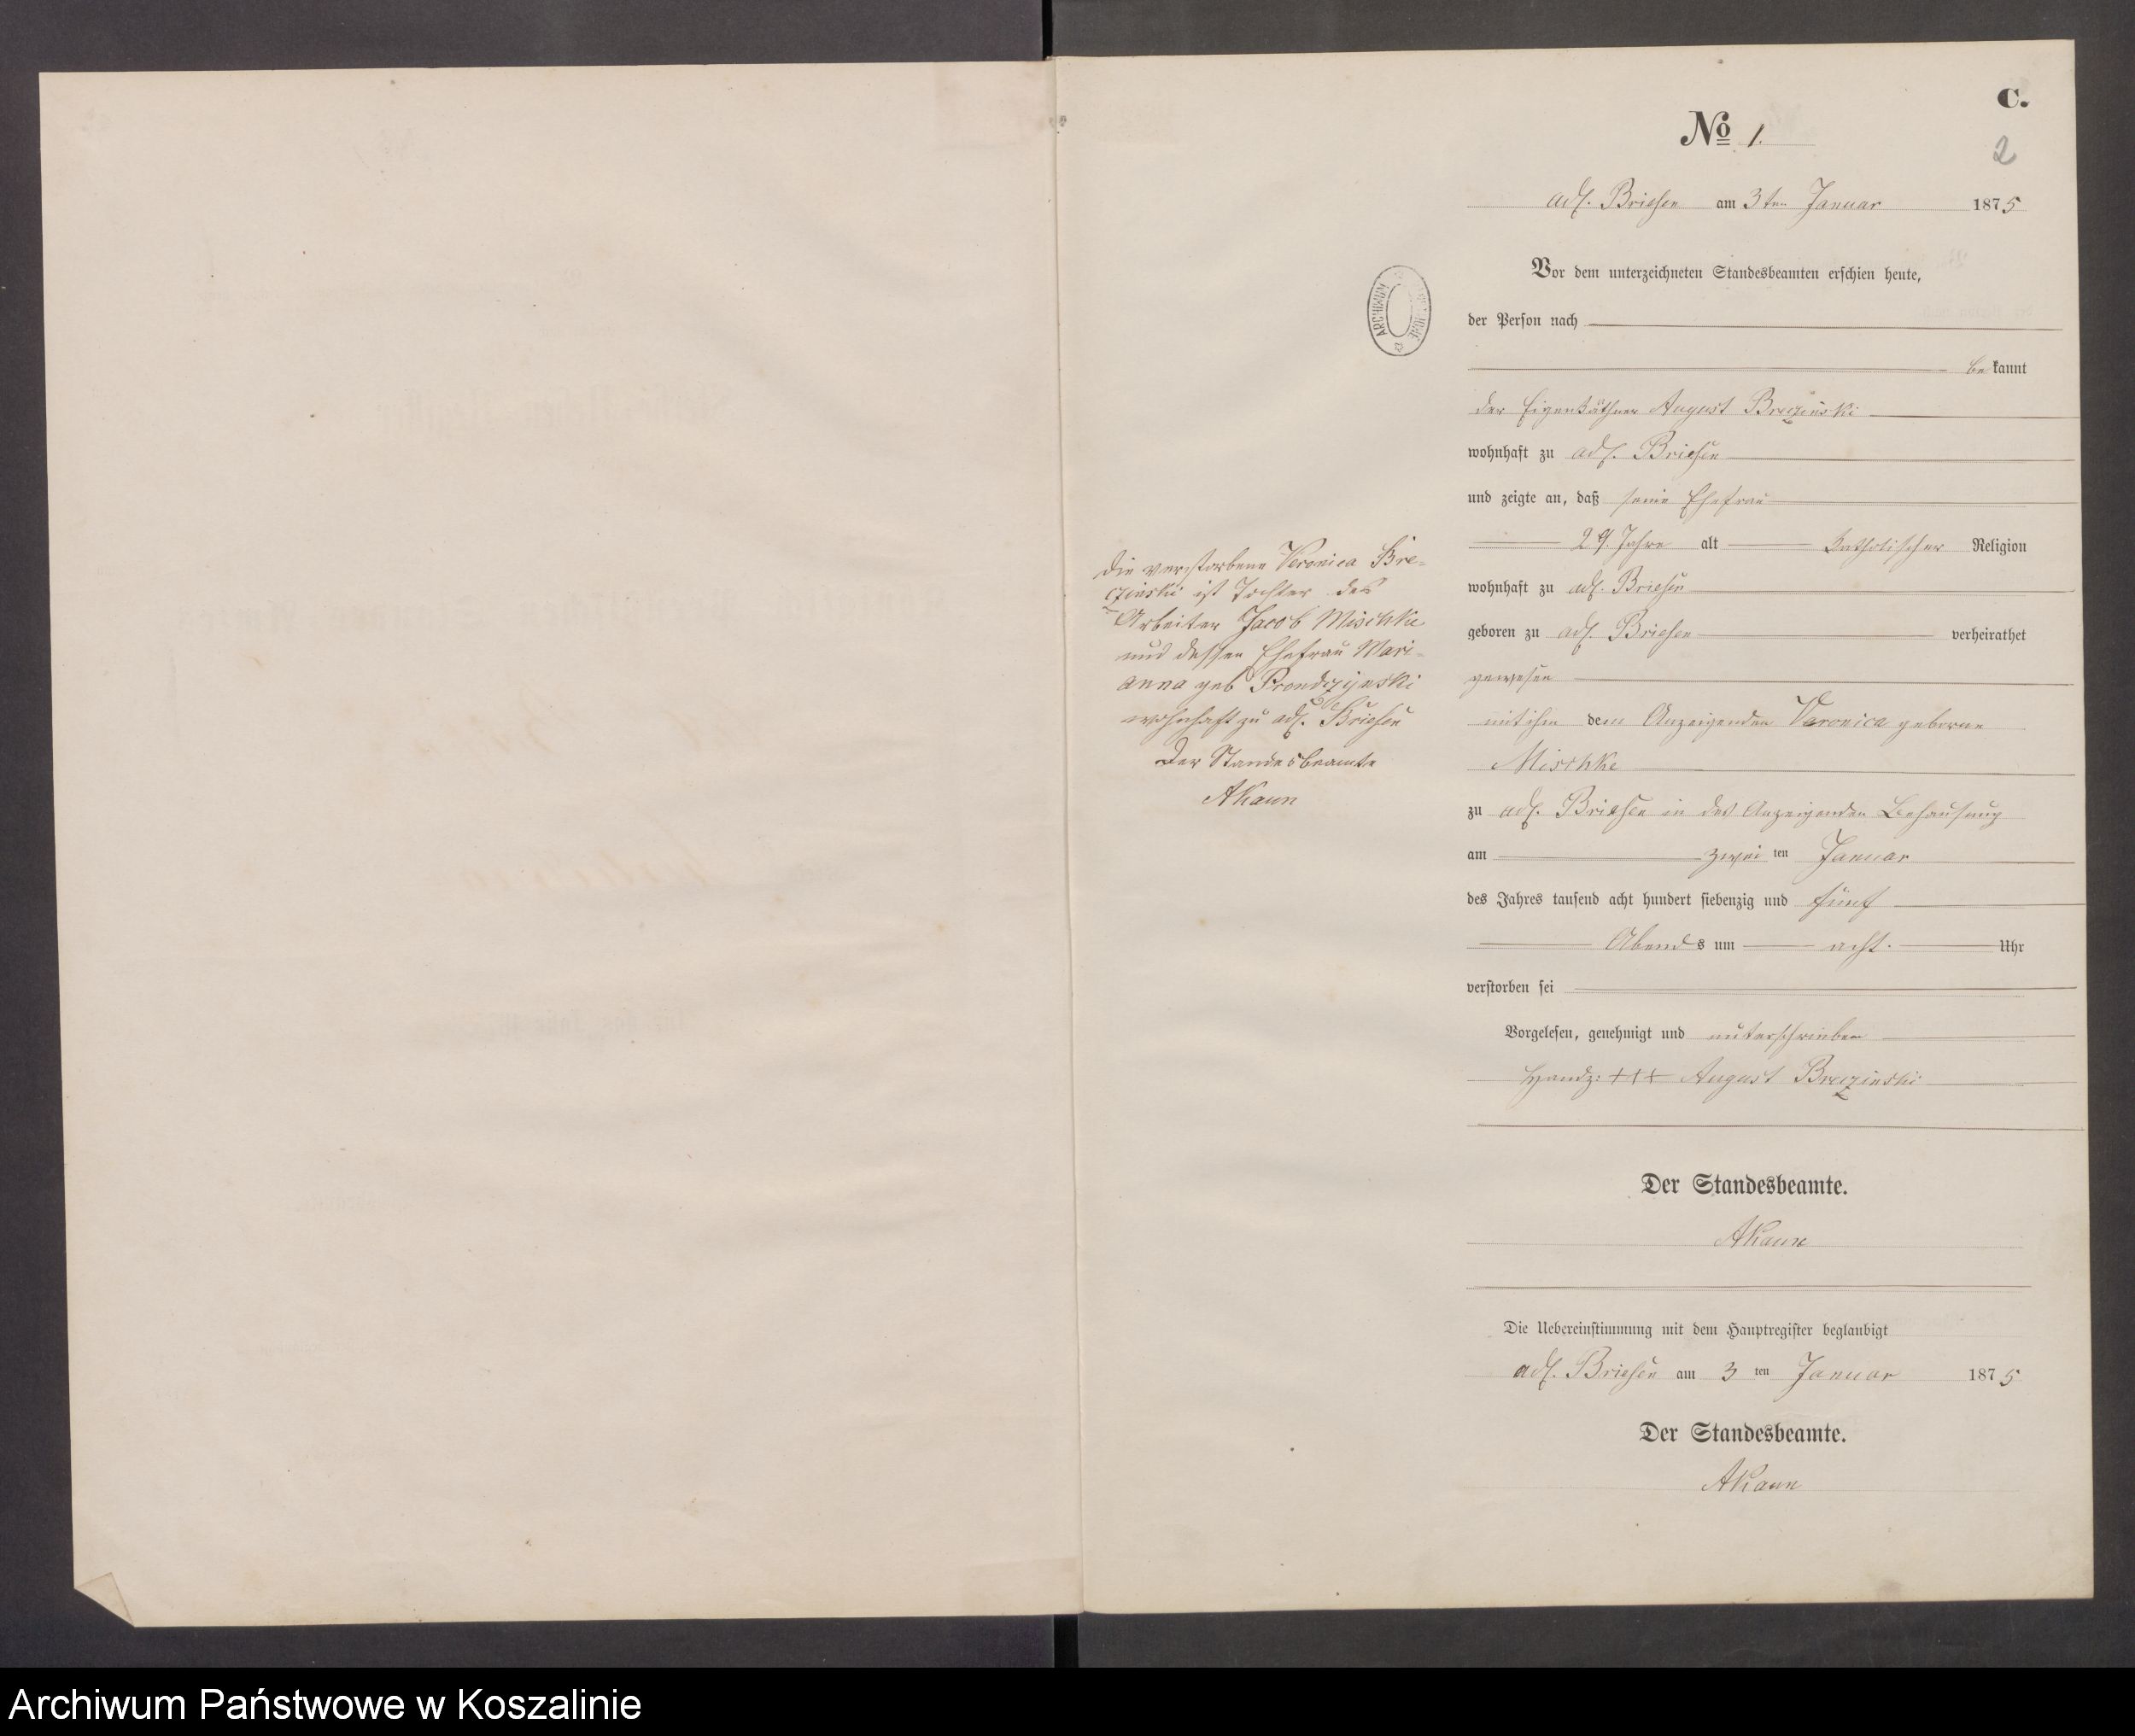 C.
No 1.
2
adl. Briesen am 3ten Januar 1875
Vor dem unterzeichneten Standesbeamten erschien heute,
der Person nach
bekannt
der Eigenkäthner August Breczinski
wohnhaft zu adl. Briesen
und zeigte an, daß seine Ehefrau
29. Jahre alt katholischer Religion
wohnhaft zu adl. Briesen
geboren zu adl. Briesen verheirathet
gewesen
mit ihm dem Anzeigenden Veronica geborne
Mischke
zu adl. Briesen in des Anzeigenden Behausung
am zweiten Januar
des Jahres tausend acht hundert siebenzig und fünf
Abends um acht. Uhr
verstorben sei
Vorgelesen, genehmigt und unterschrieben
Handz: +++ August Breczinski
Der Standesbeamte.
AKaun
Die Uebereinstimmung mit dem Hauptregister beglaubigt
adl. Briesen am 3 ten Januar 1875
Der Standesbeamte.
AKaun
Die verstorbene Veronica Bre-
czinski ist Tochter des
Arbeiter Jacob Mischke
und dessen Ehefrau Mari-
anna geb Prondczynski
wohnhaft zu adl. Briesen
Der Standesbeamte
AKaun
ARCHIWUM
Archiwum Państwowe w Koszalinie